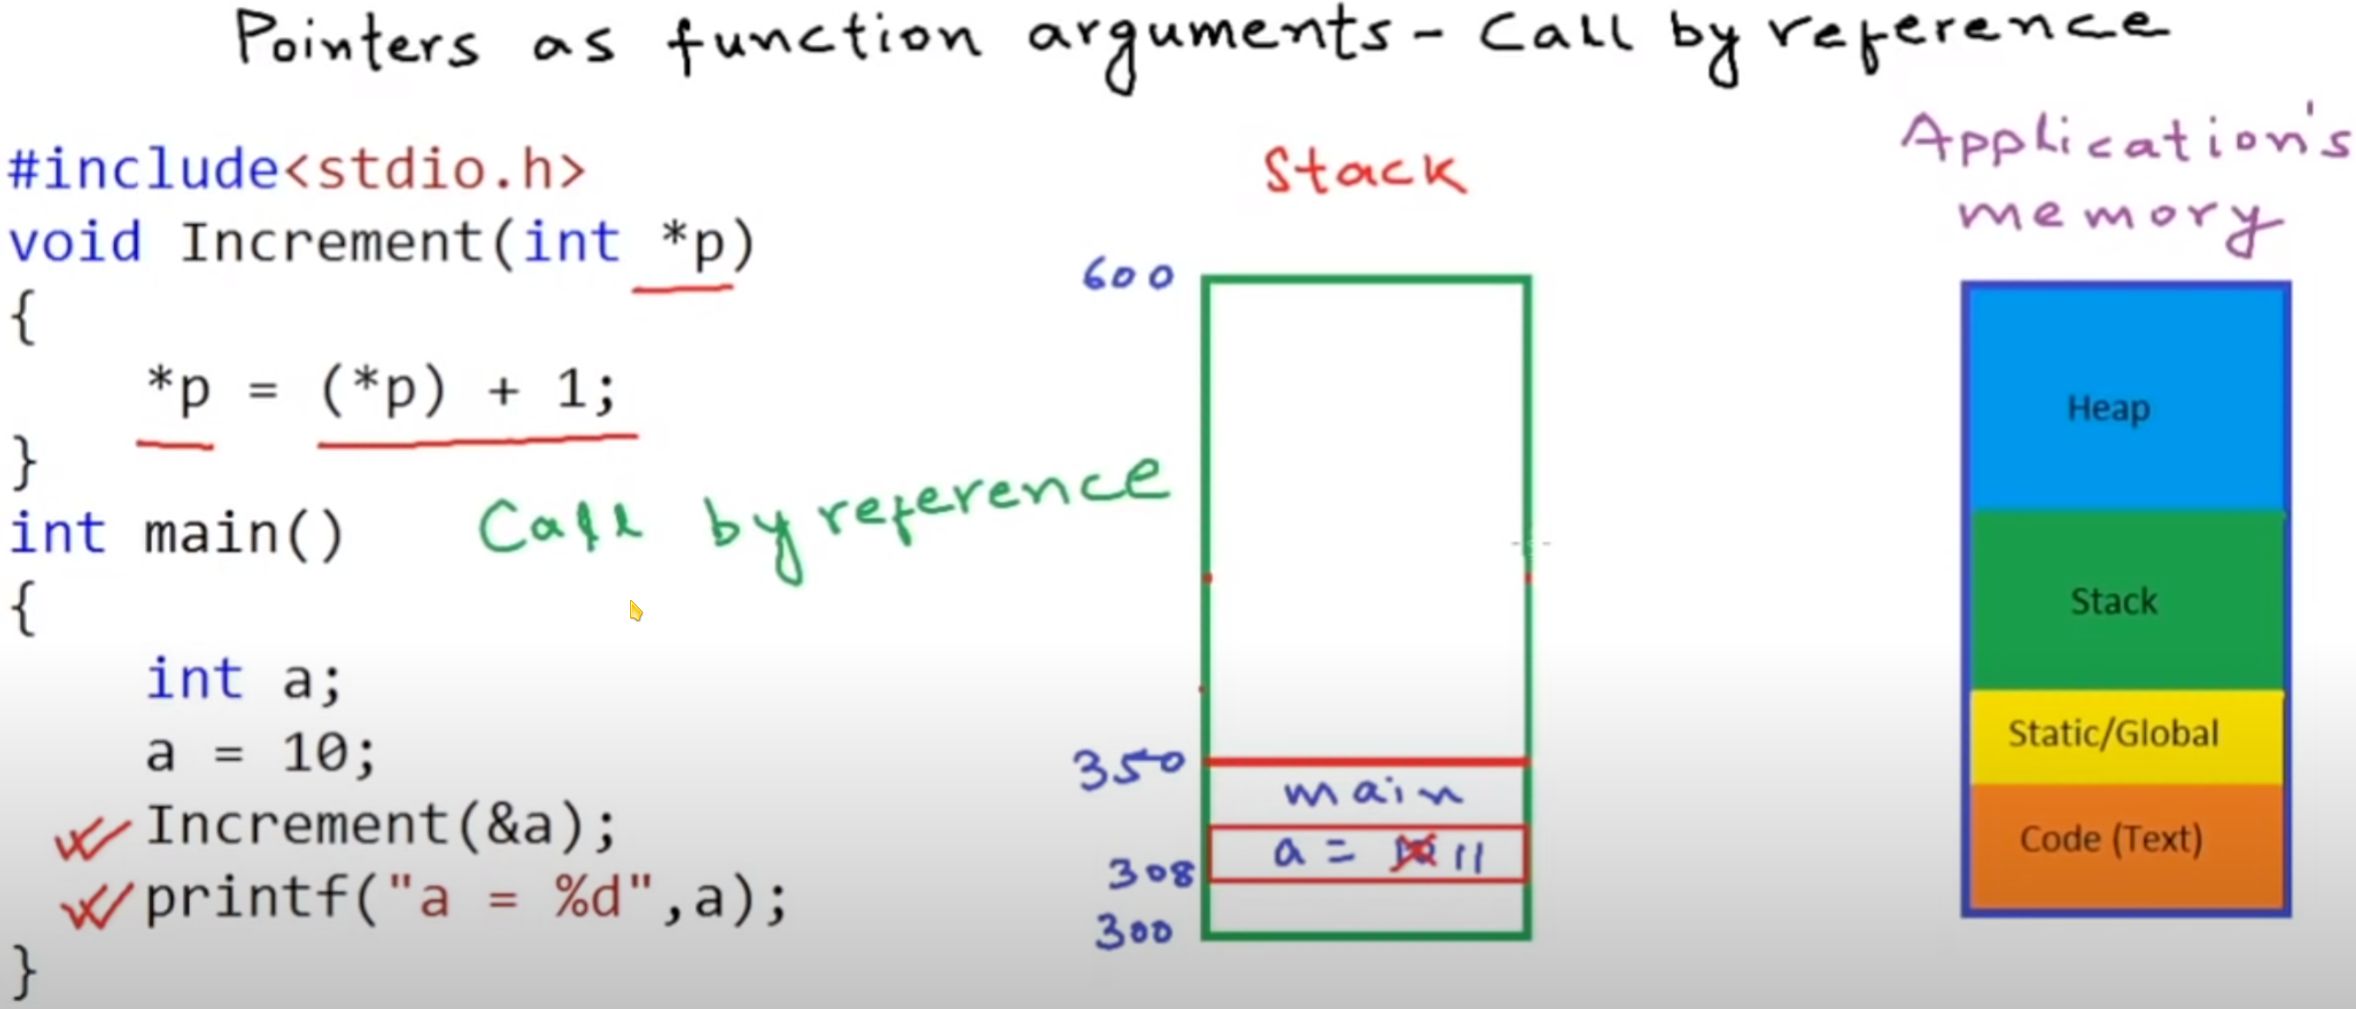 Pointers as function arguments - Call by reference
#include<stdio.h>
void Increment(int *p)
{
*p = (*p) + 1;
}
int main()
{
int a;
a = 10;
Increment(&a);
printf("a = %d",a);
}
Call by reference
Stack
600
350
main
a = 10 11
308
300
Application's
memory
Heap
Stack
Static/Global
Code (Text)